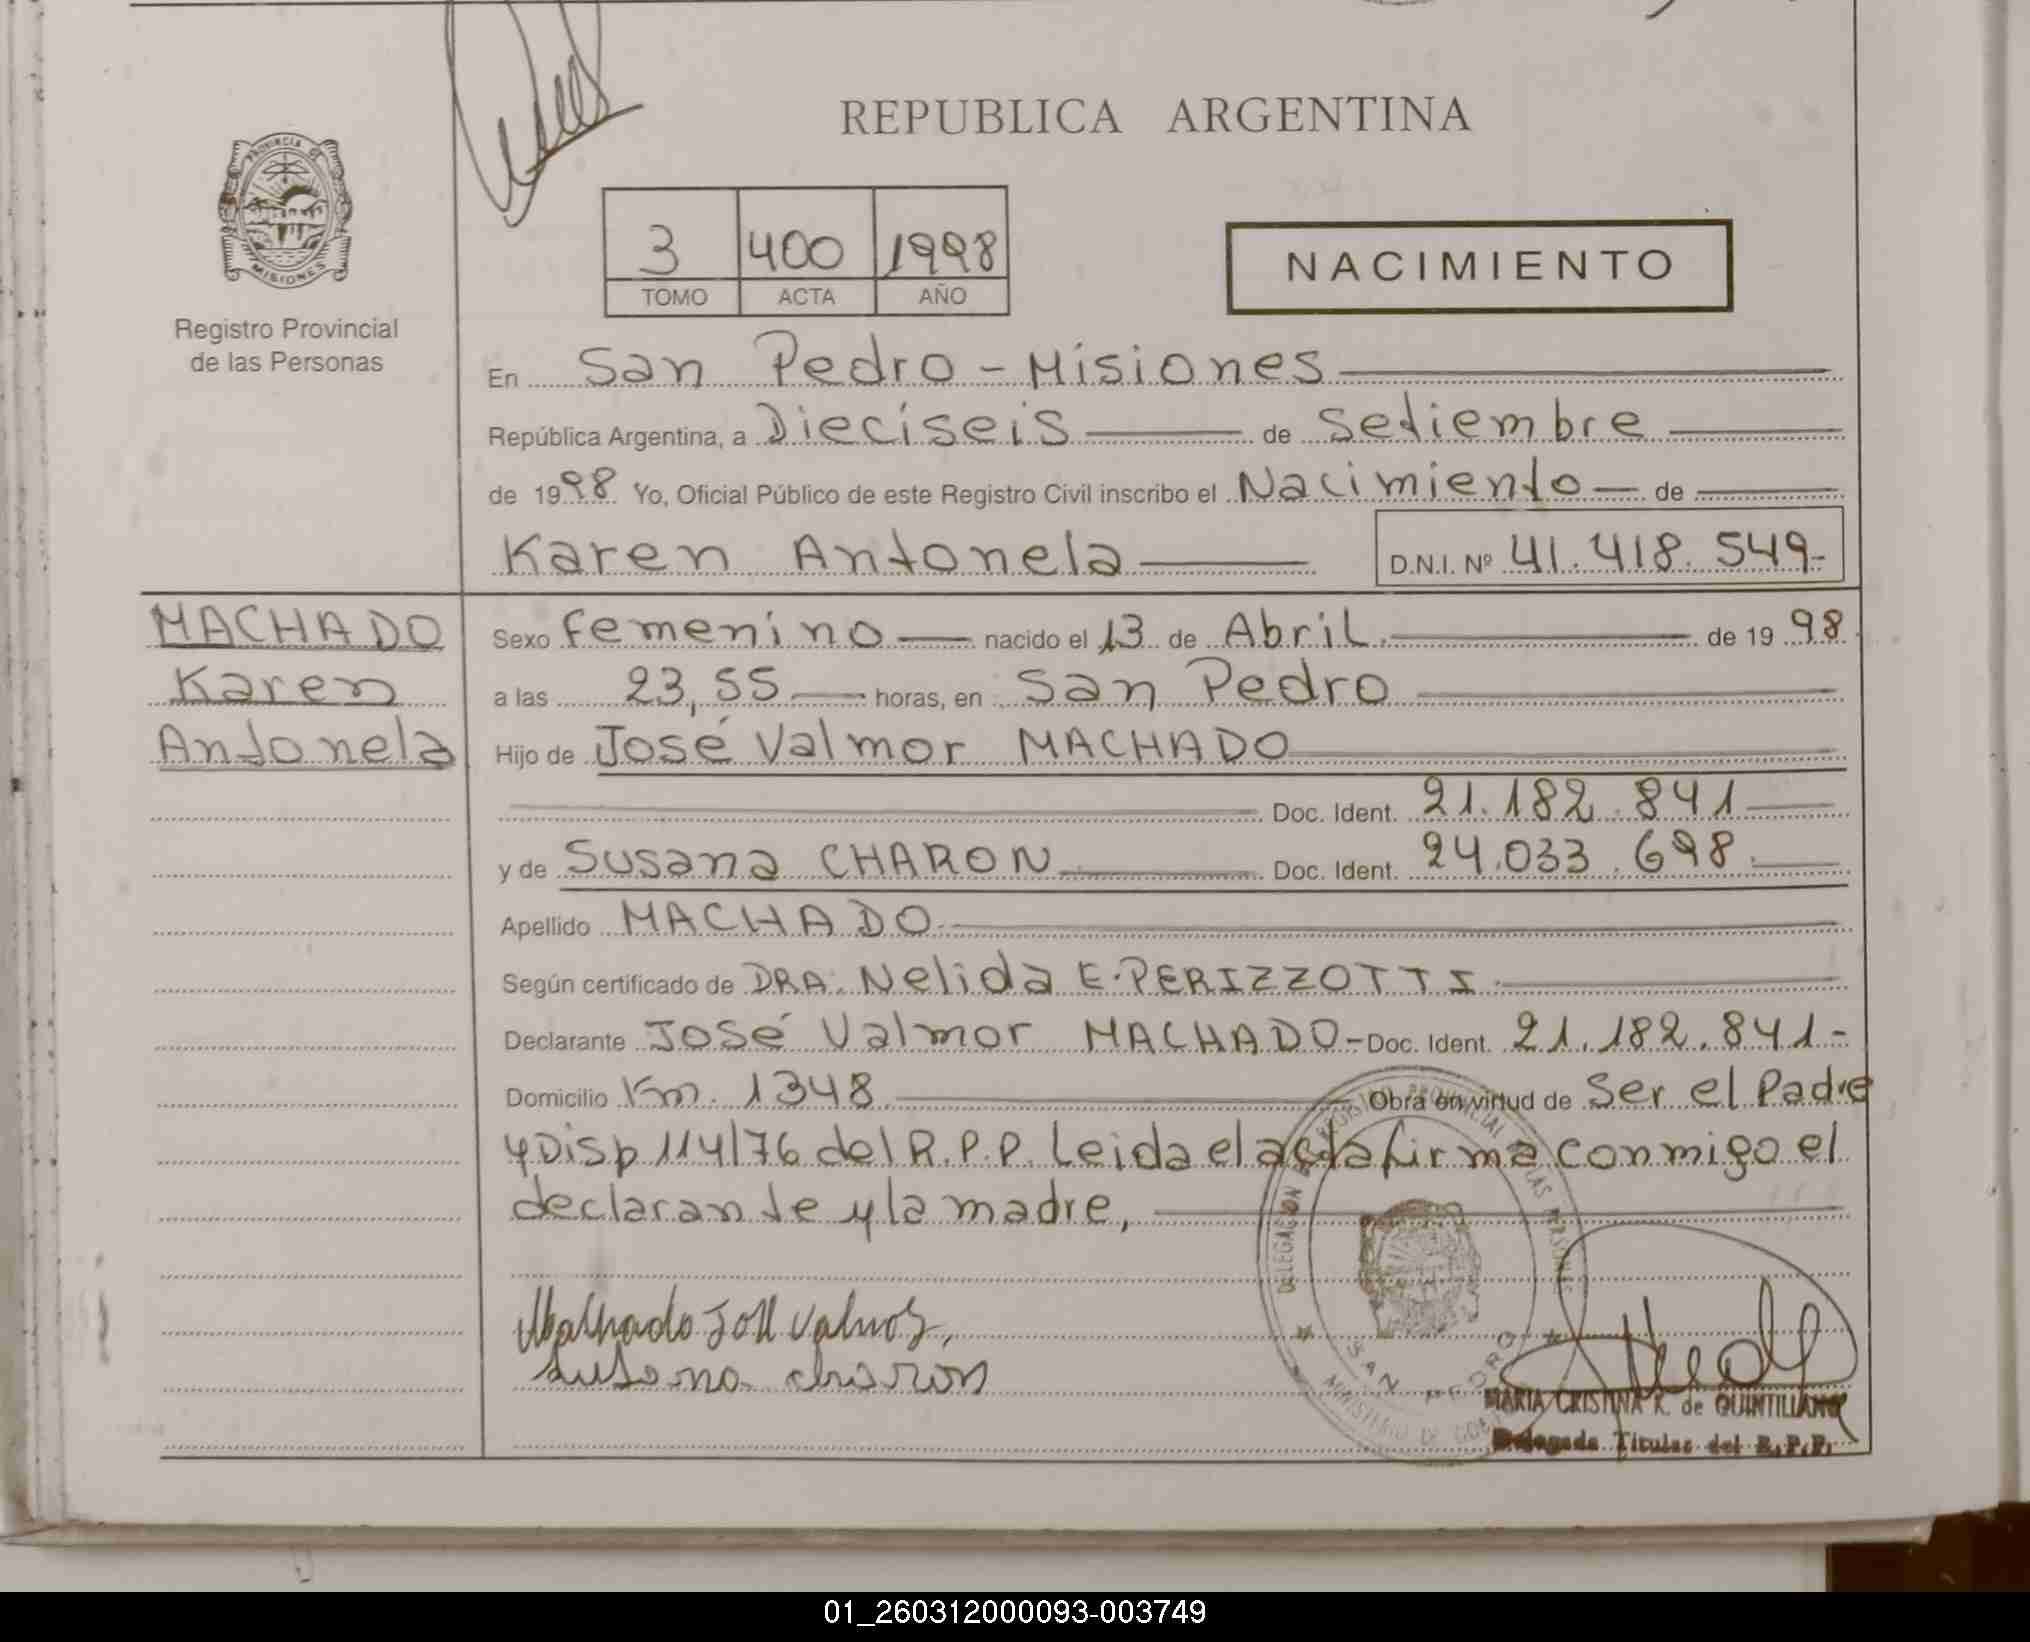 REPUBLICA ARGENTINA
PROVINCIA DE
MISIONES
Registro Provincial
de las Personas
3 400 1998
TOMO ACTA AÑO
NACIMIENTO
En San Pedro - Misiones
República Argentina, a Dieciseis de Setiembre
de 1998 Yo, Oficial Público de este Registro Civil inscribo el Nacimiento de
Karen Antonela D.N.I. Nº 41.418.549-
MACHADO
Karen
Antonela
Sexo femenino nacido el 13 de Abril. de 1998
a las 23,55 horas, en San Pedro
Hijo de José Valmor MACHADO
Doc. Ident. 21.182.841
y de Susana CHARON Doc. Ident. 24.033.698.
Apellido MACHADO
Según certificado de DRA. Nelida E. PERIZZOTTI
Declarante José Valmor MACHADO- Doc. Ident. 21.182.841-
Domicilio Km. 1348 Obra en virtud de Ser el Padre
y Disp 114/76 del R.P.P. Leida el acta firma conmigo el
declarante y la madre,
Machado José Valmor,
Susana charon
SAN PEDRO
MARIA CRISTINA R. de QUINTILLANO
Delegada Titular del R.P.P.
01_260312000093-003749